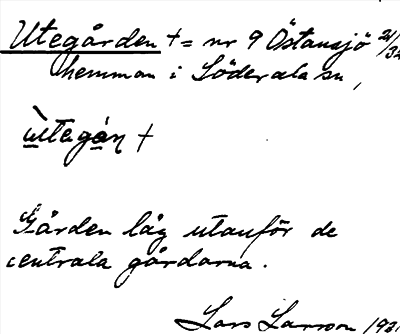 Utegården † = nr 9 Östansjö 21/32
hemman i Söderala sn,
ùtegán †
Gården låg utanför de
centrala gårdarna.
Lars Larsson